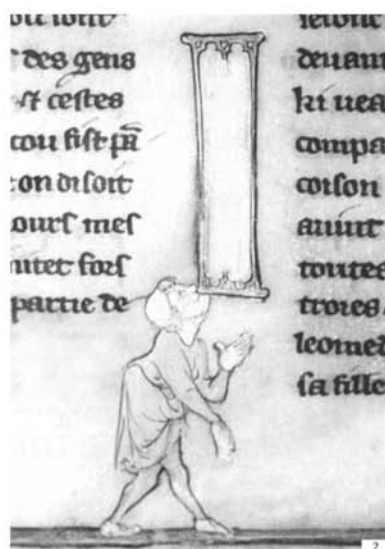 des gens
cestes
cou fist
on disoit
ours mes
fors
partie de
deuam
ki uea
compa
coison
auint
toutes
troies
leomed
sa fille
2